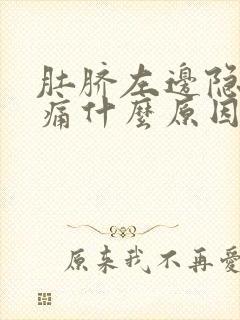 肚脐左邊隐
痛什麽原因
原来我不再愛